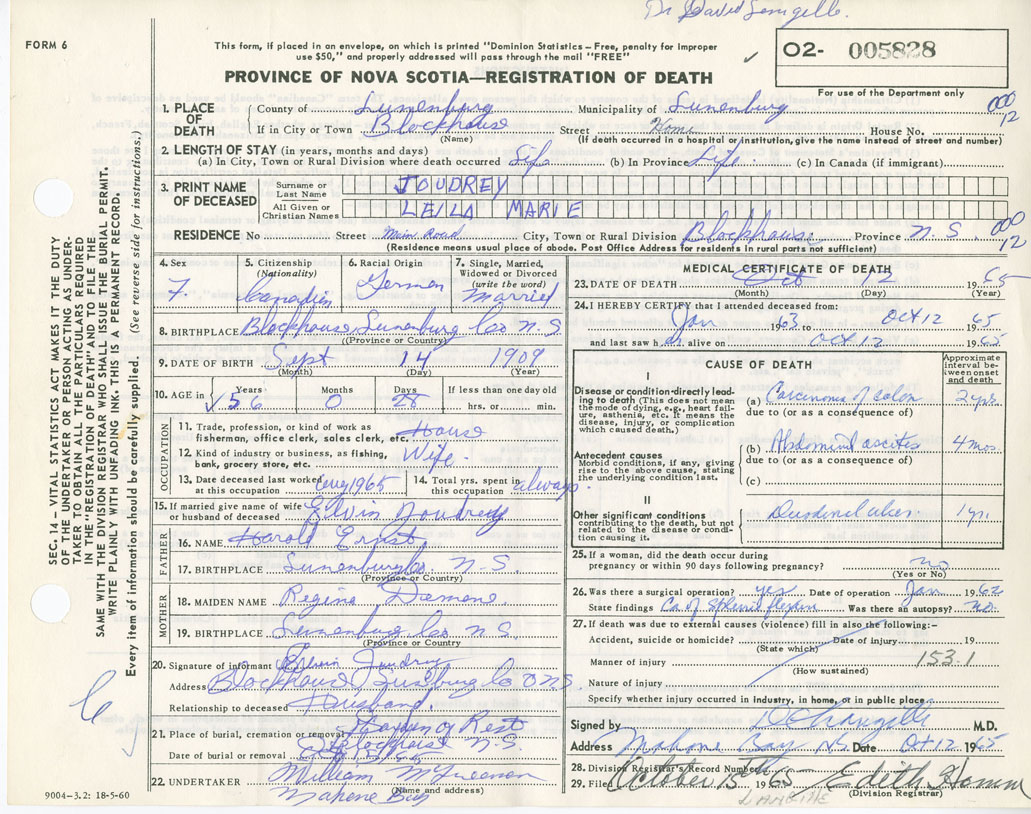 Dr David
FORM 6
This form, if placed in an envelope, on which is printed "Dominion Statistics – Free, penalty for improper
use $50," and properly addressed will pass through the mail "FREE"
O2- 005828
PROVINCE OF NOVA SCOTIA—REGISTRATION OF DEATH
For use of the Department only
1. PLACE OF DEATH
County of Lunenburg Municipality of Lunenburg 000 12
If in City or Town Blockhouse Street Home House No.
(Name) (If death occurred in a hospital or institution, give the name instead of street and number)
2. LENGTH OF STAY (in years, months and days)
(a) In City, Town or Rural Division where death occurred Life (b) In Province Life (c) In Canada (if immigrant)
3. PRINT NAME OF DECEASED
Surname or Last Name JOUDREY
All Given or Christian Names LEILA MARIE
RESIDENCE No Street Main Road City, Town or Rural Division Blockhouse Province N.S. 000 12
(Residence means usual place of abode. Post Office Address for residents in rural parts not sufficient)
4. Sex F.
5. Citizenship (Nationality) Canadian
6. Racial Origin German
7. Single, Married, Widowed or Divorced (write the word) Married
8. BIRTHPLACE Blockhouse, Lunenburg Co N.S.
(Province or Country)
9. DATE OF BIRTH Sept 14 1909
(Month) (Day) (Year)
10. AGE in Years 56 Months 0 Days 28 If less than one day old hrs. or min.
OCCUPATION
11. Trade, profession or kind of work as fisherman, office clerk, sales clerk, etc. House
12. Kind of industry or business, as fishing, bank, grocery store, etc. Wife.
13. Date deceased last worked at this occupation Aug 1965
14. Total yrs. spent in this occupation always.
15. If married give name of wife or husband of deceased Elvin Joudrey
FATHER
16. NAME Harold Ernst
17. BIRTHPLACE Lunenburg Co N.S.
(Province or Country)
MOTHER
18. MAIDEN NAME Regina
19. BIRTHPLACE Lunenburg Co N.S.
(Province or Country)
20. Signature of informant Elvin Joudrey
Address Blockhouse, Lunenburg Co N.S.
Relationship to deceased Husband.
21. Place of burial, cremation or removal Haven of Rest
Blockhouse N.S.
Date of burial or removal
22. UNDERTAKER William
(Name and address)
Mahone Bay
9004-3.2: 18-5-60
MEDICAL CERTIFICATE OF DEATH
23. DATE OF DEATH Oct 12 1965
(Month) (Day) (Year)
24. I HEREBY CERTIFY that I attended deceased from:
Jan 1963 to Oct 12 1965
and last saw her alive on Oct 12 1965
CAUSE OF DEATH
Approximate Interval between onset and death
I
Disease or condition directly leading to death (This does not mean the mode of dying, e.g., heart failure, asthenia, etc. It means the disease, injury, or complication which caused death.)
(a) Carcinoma of colon 2 yrs.
due to (or as a consequence of)
Antecedent causes
Morbid conditions, if any, giving rise to the above cause, stating the underlying condition last.
(b) Abdominal ascites 4 mos.
due to (or as a consequence of)
(c)
II
Other significant conditions
contributing to the death, but not related to the disease or condition causing it.
Duodenal ulcer 1 yr.
25. If a woman, did the death occur during pregnancy or within 90 days following pregnancy? no
(Yes or No)
26. Was there a surgical operation? yes Date of operation Jan
State findings Ca. of splenic flexure Was there an autopsy? no.
27. If death was due to external causes (violence) fill in also the following:–
Accident, suicide or homicide? Date of injury 19
(State which)
Manner of injury 153.1
(How sustained)
Nature of injury
Specify whether injury occurred in industry, in home, or in public place
Signed by M.D.
Address Mahone Bay N.S. Date Oct 12 1965
28. Division Registrar's Record Number
29. Filed October 15th 1965 Edith
(Division Registrar)
SEC. 14 – VITAL STATISTICS ACT MAKES IT THE DUTY
OF THE UNDERTAKER OR PERSON ACTING AS UNDER-
TAKER TO OBTAIN ALL THE PARTICULARS REQUIRED
IN THE "REGISTRATION OF DEATH" AND TO FILE THE
SAME WITH THE DIVISION REGISTRAR WHO SHALL ISSUE THE BURIAL PERMIT.
WRITE PLAINLY WITH UNFADING INK. THIS IS A PERMANENT RECORD.
Every item of information should be carefully supplied. (See reverse side for instructions.)